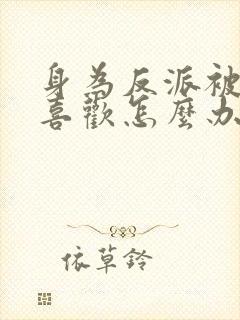 身為反派被
喜歡怎麼办
依草鈴